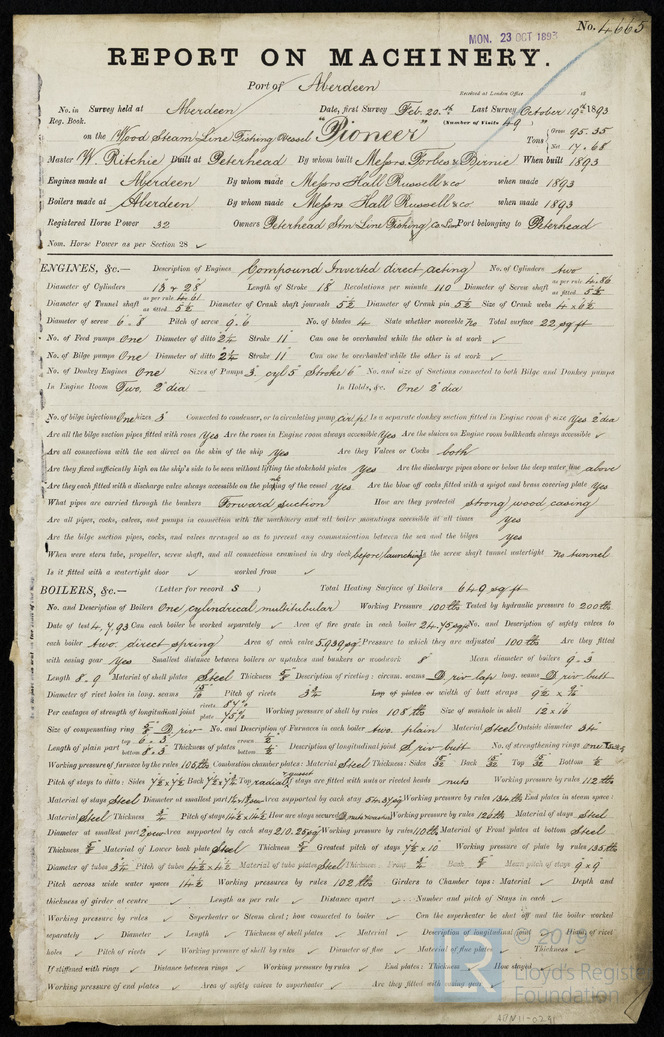 No. 4665
MON. 23 OCT 1893
REPORT ON MACHINERY.
Port of Aberdeen
Received at London Office 18
No. in Survey held at Aberdeen Date, first Survey Feb. 20.th Last Survey October 19th 1893
Reg. Book. (Number of Visits 49)
on the Wood Steam Line Fishing Vessel "Pioneer" Tons Gross 95.35 Net 7.68
Master W. Ritchie Built at Peterhead By whom built Messrs Forbes & Birnie When built 1893
Engines made at Aberdeen By whom made Messrs Hall Russell & co when made 1893
Boilers made at Aberdeen By whom made Messrs Hall Russell & co when made 1893
Registered Horse Power 32 Owners Peterhead Stm Line Fishing Co Lim Port belonging to Peterhead
Nom. Horse Power as per Section 28 ✓
ENGINES, &c.— Description of Engines Compound Inverted direct acting No. of Cylinders two
Diameter of Cylinders 13 & 28 Length of Stroke 18 Revolutions per minute 110 Diameter of Screw shaft as per rule 4.86 as fitted 5½
Diameter of Tunnel shaft as per rule 4.61 as fitted 5½ Diameter of Crank shaft journals 5½ Diameter of Crank pin 5½ Size of Crank webs 4 x 6½
Diameter of screw 6.8 Pitch of screw 9.6 No. of blades 4 State whether moveable No Total surface 22 sq ft
No. of Feed pumps One Diameter of ditto 2¼ Stroke 11" Can one be overhauled while the other is at work ✓
No. of Bilge pumps One Diameter of ditto 2¼ Stroke 11" Can one be overhauled while the other is at work ✓
No. of Donkey Engines One Sizes of Pumps 3" cyl 5" Stroke 6" No. and size of Suctions connected to both Bilge and Donkey pumps
In Engine Room Two, 2" dia In Holds, &c. One 2" dia
No. of bilge injections One sizes 3" Connected to condenser, or to circulating pump cir p. Is a separate donkey suction fitted in Engine room & size Yes 2" dia
Are all the bilge suction pipes fitted with roses Yes Are the roses in Engine room always accessible Yes Are the sluices on Engine room bulkheads always accessible ✓
Are all connections with the sea direct on the skin of the ship Yes Are they Valves or Cocks both
Are they fixed sufficiently high on the ship's side to be seen without lifting the stokehold plates Yes Are the discharge pipes above or below the deep water line above
Are they each fitted with a discharge valve always accessible on the plating of the vessel Yes Are the blow off cocks fitted with a spigot and brass covering plate Yes
What pipes are carried through the bunkers Forward suction How are they protected Strong wood casing
Are all pipes, cocks, valves, and pumps in connection with the machinery and all boiler mountings accessible at all times Yes
Are the bilge suction pipes, cocks, and valves arranged so as to prevent any communication between the sea and the bilges Yes
When were stern tube, propeller, screw shaft, and all connections examined in dry dock before launching Is the screw shaft tunnel watertight No tunnel
Is it fitted with a watertight door ✓ worked from ✓
BOILERS, &c.— (Letter for record S) Total Heating Surface of Boilers 649 sq ft
No. and Description of Boilers One, cylindrical multitubular Working Pressure 100 lbs Tested by hydraulic pressure to 200 lbs
Date of test 4.7.93 Can each boiler be worked separately ✓ Area of fire grate in each boiler 24.75 sq ft No. and Description of safety valves to
each boiler two, direct spring Area of each valve 5.939 sq" Pressure to which they are adjusted 100 lbs Are they fitted
with easing gear Yes Smallest distance between boilers or uptakes and bunkers or woodwork 8" Mean diameter of boilers 9.3
Length 8.9 Material of shell plates Steel Thickness Description of riveting: circum. seams D. riv lap long. seams D. riv butt
Diameter of rivet holes in long. seams Pitch of rivets 3¾ Lap of plates or width of butt straps
Per centages of strength of longitudinal joint rivets 84% plate 75% Working pressure of shell by rules 108 lbs Size of manhole in shell 12 x 16
Size of compensating ring D. riv No. and Description of Furnaces in each boiler two, plain Material Steel Outside diameter 34
Length of plain part top 6.3 bottom 8.3 Thickness of plates crown ½ bottom ½ Description of longitudinal joint S. riv butt No. of strengthening rings one
Working pressure of furnace by the rules 105 lbs Combustion chamber plates: Material Steel Thickness: Sides 15/32 Back 15/32 Top 15/32 Bottom ½
Pitch of stays to ditto: Sides 7½ x 7½ Back 7½ x 7½ Top radial & gusset If stays are fitted with nuts or riveted heads nuts Working pressure by rules 112 lbs
Material of stays Steel Diameter at smallest part Area supported by each stay Working pressure by rules 134 lbs End plates in steam space:
Material Steel Thickness Pitch of stays How are stays secured D. nuts & washers Working pressure by rules 126 lbs Material of stays Steel
Diameter at smallest part Area supported by each stay 210.25 sq" Working pressure by rules 110 lbs Material of Front plates at bottom Steel
Thickness Material of Lower back plate Steel Thickness Greatest pitch of stays 7½ x 10 Working pressure of plate by rules 135 lbs
Diameter of tubes 3¼ Pitch of tubes 4½ x 4½ Material of tube plates Steel Thickness: Front Back Mean pitch of stays 9 x 9
Pitch across wide water spaces 14½ Working pressures by rules 102 lbs Girders to Chamber tops: Material ✓ Depth and
thickness of girder at centre ✓ Length as per rule ✓ Distance apart ✓ Number and pitch of Stays in each ✓
Working pressure by rules ✓ Superheater or Steam chest; how connected to boiler ✓ Can the superheater be shut off and the boiler worked
separately ✓ Diameter ✓ Length ✓ Thickness of shell plates ✓ Material ✓ Description of longitudinal joint ✓ Diam. of rivet
holes ✓ Pitch of rivets ✓ Working pressure of shell by rules ✓ Diameter of flue ✓ Material of flue plates ✓ Thickness ✓
If stiffened with rings ✓ Distance between rings ✓ Working pressure by rules ✓ End plates: Thickness ✓ How stayed
Working pressure of end plates ✓ Area of safety valves to superheater ✓ Are they fitted with easing gear ✓
© 2019
Lloyd's Register
Foundation
ABN11-0291